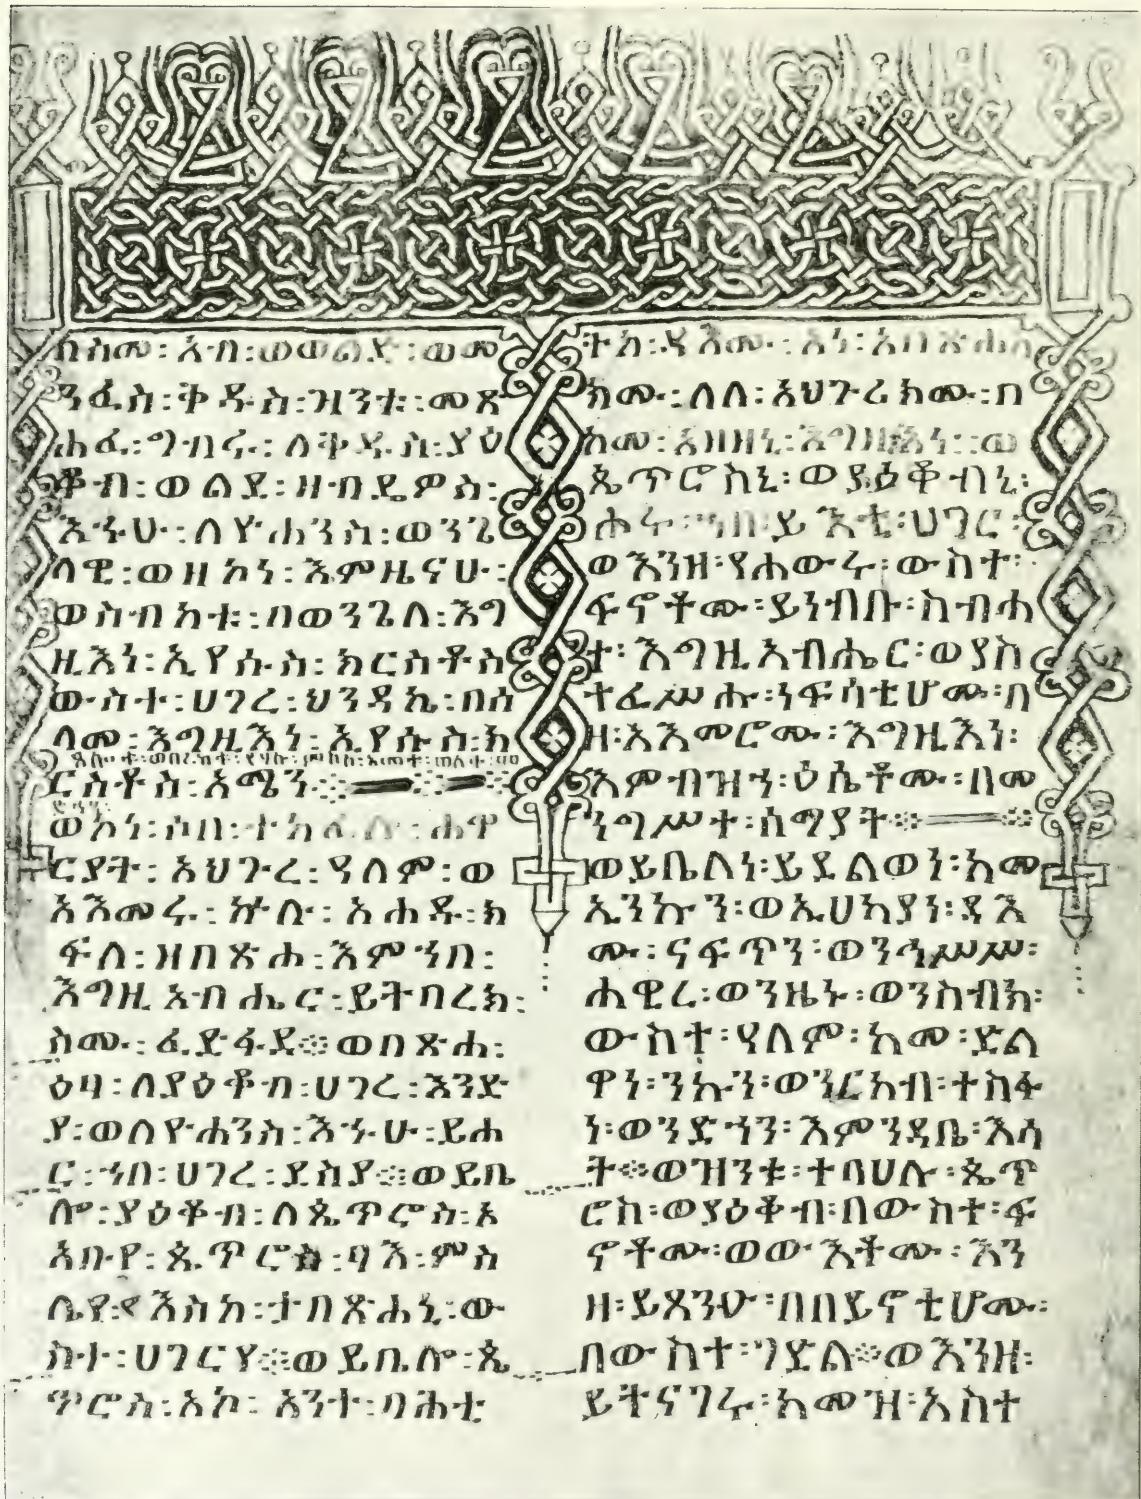 በስመ፡ አብ፡ ወወልድ፡ ወመ
ንፈስ፡ ቅዱስ፡ ዝንቱ፡ መጽ
ሐፈ፡ ግብሩ፡ ለቅዱስ፡ ያዕ
ቆብ፡ ወልደ፡ ዘብዴዎስ፡
እኁሁ፡ ለዮሐንስ፡ ወንጌ
ላዊ፡ ወዘኮነ፡ እምዜናሁ፡
ወስብከቱ፡ በወንጌለ፡ እግ
ዚእነ፡ ኢየሱስ፡ ክርስቶስ
ውስተ፡ ሀገረ፡ ህንዳኬ፡ በሰ
ላመ፡ እግዚእነ፡ ኢየሱስ፡ ክ
ርስቶስ፡ አሜን፨
ወኮነ፡ ሶበ፡ ተካፈሉ፡ ሐዋ
ርያት፡ አህጉረ፡ ዓለም፡ ወ
አእመሩ፡ ኵሉ፡ አሐዱ፡ ክ
ፍለ፡ ዘበጽሐ፡ እምኀበ፡
እግዚአብሔር፡ ይትባረክ፡
ስሙ፡ ፈድፋደ፨ ወበጽሐ፡
ዕዛ፡ ለያዕቆብ፡ ሀገረ፡ እንድ
ያ፡ ወለዮሐንስ፡ እኁሁ፡ ይሐ
ር፡ ኀበ፡ ሀገረ፡ ደስያ፨ ወይቤ
ሎ፡ ያዕቆብ፡ ለጴጥሮስ፡ አ
አቡየ፡ ጴጥሮስ፡ ባእ፡ ምስ
ሌየ፡ እስከ፡ ታበጽሐኒ፡ ው
ስተ፡ ሀገርየ፨ ወይቤሎ፡ ጴ
ጥሮስ፡ አኮ፡ አንተ፡ ባሕቲ
ትከ፡ ዳእሙ፡ አነ፡ አበጽሐ
ክሙ፡ ለለ፡ አህጉሪክሙ፡ በ
ከመ፡ አዘዘኒ፡ እግዚእነ፡ ወ
ጴጥሮስኒ፡ ወያዕቆብኒ፡
ሖሩ፡ ኀበ፡ ይእቲ፡ ሀገር፡
ወእንዘ፡ የሐውሩ፡ ውስተ፡
ፍኖቶሙ፡ ይነብቡ፡ ስብሓ
ተ፡ እግዚአብሔር፡ ወያስ
ተፈሥሑ፡ ነፍሳቲሆሙ፡ በ
ዘ፡ አእመሮሙ፡ እግዚእነ፡
እምብዝኀ፡ ዕሴቶሙ፡ በመ
ንግሥተ፡ ሰማያት፨
ወይቤለነ፡ ይደልወነ፡ ከመ
ኢንኩን፡ ወኢሀካያነ፡ ዳእ
ሙ፡ ናፍጥን፡ ወንኅሥሥ፡
ሐዊረ፡ ወንዜኑ፡ ወንስብክ፡
ውስተ፡ ዓለም፡ ከመ፡ ድል
ዋነ፡ ንኩን፡ ወንርከብ፡ ተስፋ
ነ፡ ወንድኀን፡ እምንዳቤ፡ እሳ
ት፨ ወዝንቱ፡ ተባሀሉ፡ ጴጥ
ሮስ፡ ወያዕቆብ፡ በውስተ፡ ፍ
ኖቶሙ፡ ወውእቶሙ፡ እን
ዘ፡ ይጸንዑ፡ በበይኖቲሆሙ፡
በውስተ፡ ገድል፨ ወእንዘ፡
ይትናገሩ፡ ከመዝ፡ አስተ